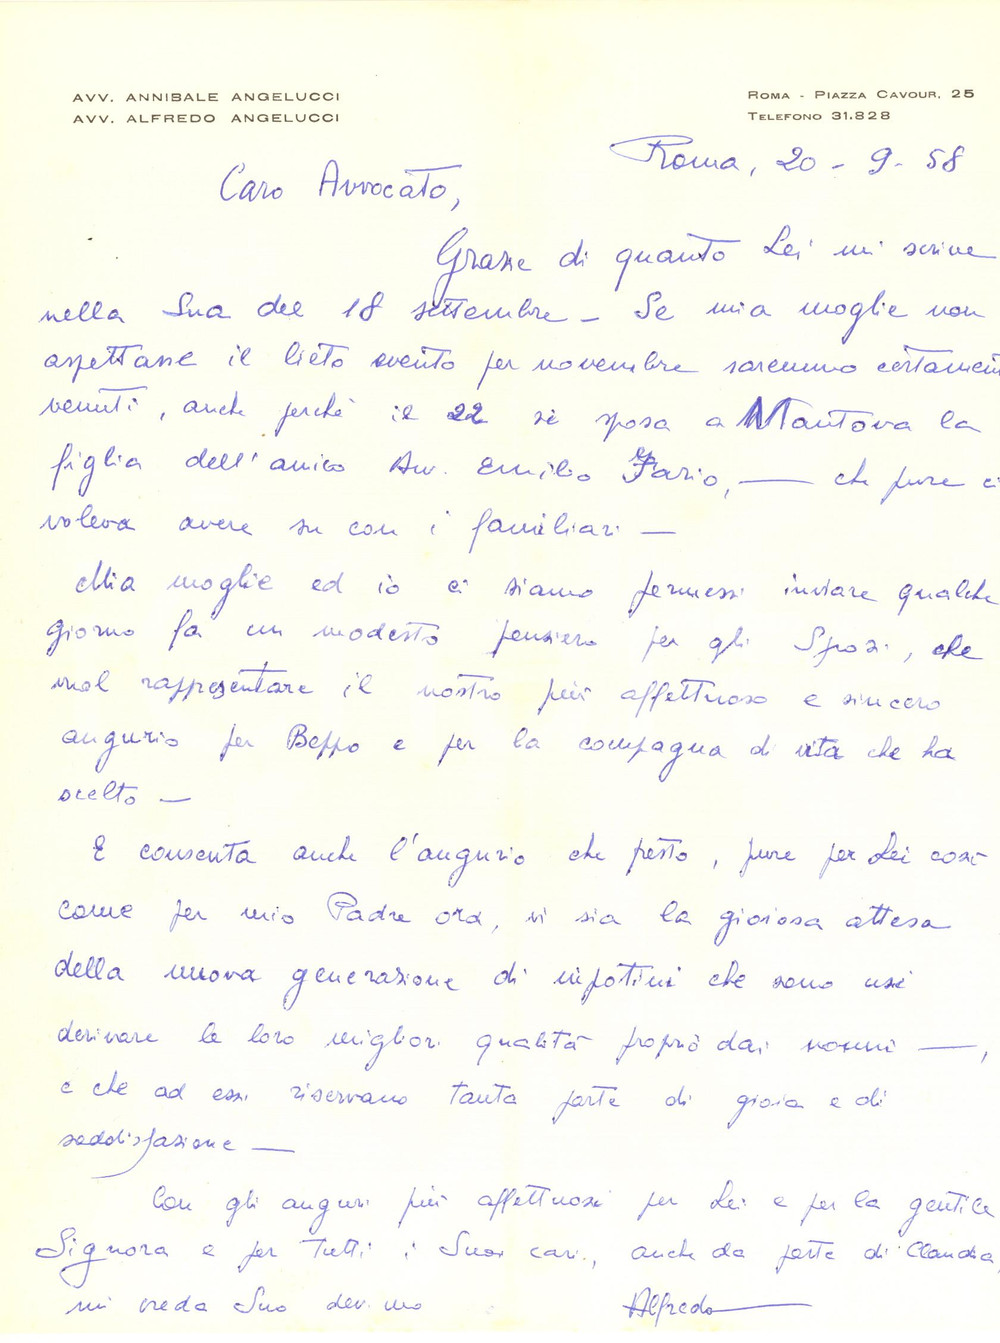 AVV. ANNIBALE ANGELUCCI
AVV. ALFREDO ANGELUCCI
ROMA - PIAZZA CAVOUR, 25
TELEFONO 31.828
Roma, 20 - 9 - 58
Caro Avvocato,
Grazie di quanto Lei mi scrive
nella Sua del 18 settembre - Se mia moglie non
aspettasse il lieto evento per novembre saremmo certamente
venuti, anche perchè il 22 si sposa a Mantova la
figlia dell'amico Avv. Emilio Fario, — che pure ci
voleva avere su con i familiari —
Mia moglie ed io ci siamo permessi inviare qualche
giorno fa un modesto pensiero per gli Sposi, che
vuol rappresentare il nostro più affettuoso e sincero
augurio per Beppo e per la compagna di vita che ha
scelto —
E consenta anche l'augurio che presto, pure per Lei così
come per mio Padre ora, vi sia la gioiosa attesa
della nuova generazione di nipotini che sono usi
derivare le loro migliori qualità proprio dai nonni —,
e che ad essi riservano tanta parte di gioia e di
soddisfazione —
Con gli auguri più affettuosi per Lei e per la gentile
Signora e per Tutti i Suoi cari, anche da parte di Claudia,
mi creda Suo dev.mo
Alfredo